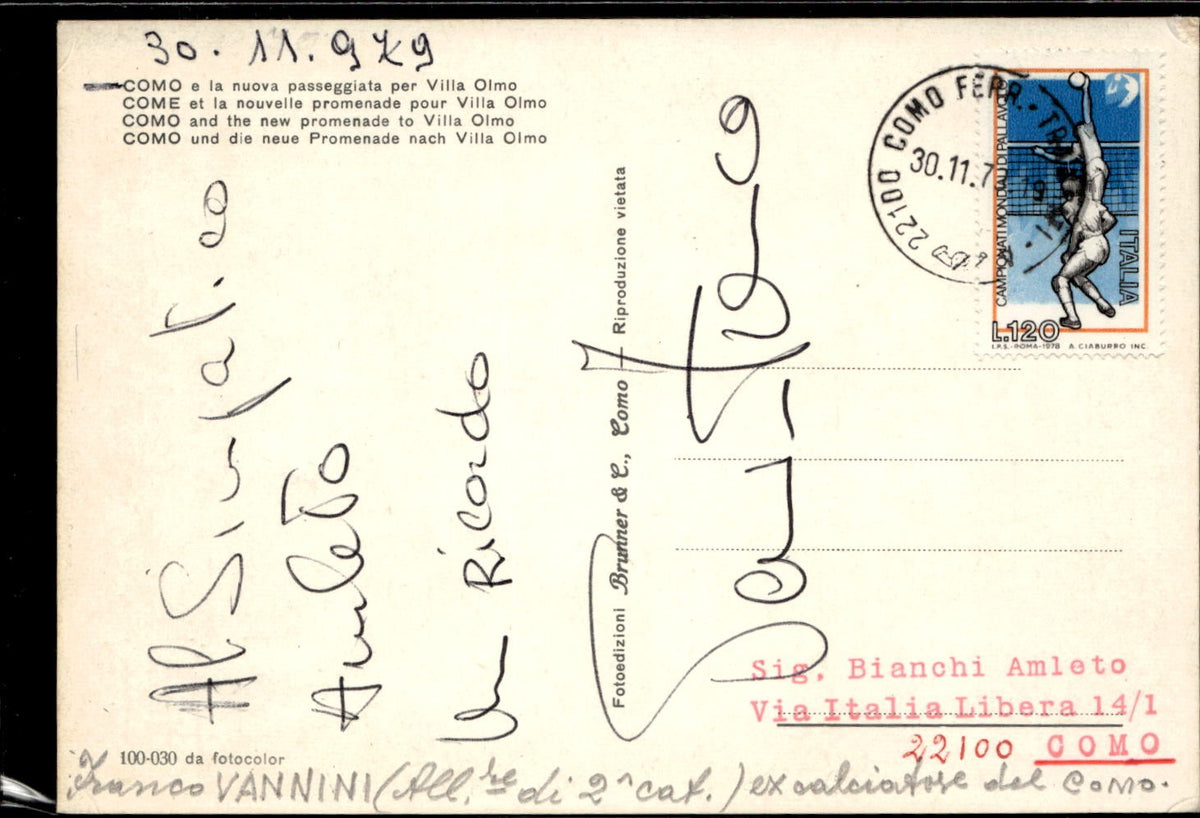 30.11.979
COMO e la nuova passeggiata per Villa Olmo
COME et la nouvelle promenade pour Villa Olmo
COMO and the new promenade to Villa Olmo
COMO und die neue Promenade nach Villa Olmo
22100 COMO FERR.
30.11.7
19
CAMPIONATI MONDIALI DI PALLAVOLO
ITALIA
L.120
I.P.S.-ROMA-1978 A. CIABURRO INC.
Al Simpatico
Amleto
un Ricordo
Fotoedizioni Brunner & C., Como — Riproduzione vietata
Sig. Bianchi Amleto
Via Italia Libera 14/1
22100 COMO
100-030 da fotocolor
Franco VANNINI (All.re di 2ª cat.) ex calciatore del Como.